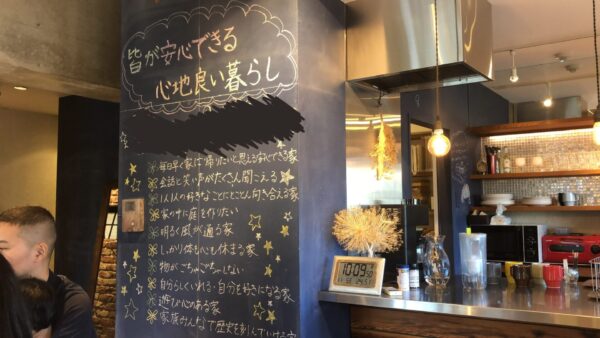 皆が安心できる
心地良い暮らし
毎日早く家に帰りたいと思える好きでいる家
会話と笑い声がたくさん聞こえる家
1人1人の好きなことにとことん向き合える家
家の中に庭を作りたい
明るく風が通る家
しっかり体も心も休まる家
物がごちゃごちゃしない
自分らしくいれる・自分を好きになる家
遊び心のある家
家族みんなで歴史を刻んでいける家
10:09